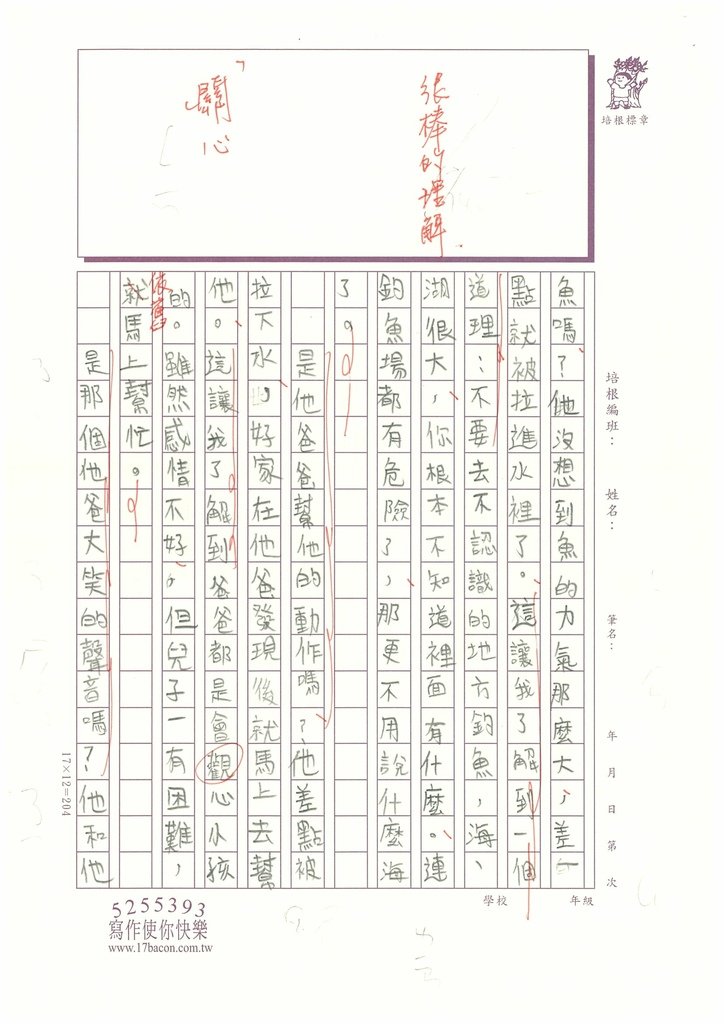 培根標章
很棒的理解.
關心
培根編班： 姓名： 筆名： 年 月 日 第 次
魚嗎？他沒想到魚的力氣那麼大，差一
點就被拉進水裡了。這讓我了解到一個
道理：不要去不認識的地方釣魚，海、
湖很大，你根本不知道裡面有什麼。連
釣魚場都有危險了，那更不用說什麼海
了。
是他爸爸幫他的動作嗎？他差點被
拉下水，好家在他爸發現後就馬上去幫
他。這讓我了解到爸爸都是會觀心小孩
的。雖然感情不好，但兒子一有困難，
依舊
就馬上幫忙。
是那個他爸大笑的聲音嗎？他和他
17×12=204
學校 年級
5255393
寫作使你快樂
www.17bacon.com.tw